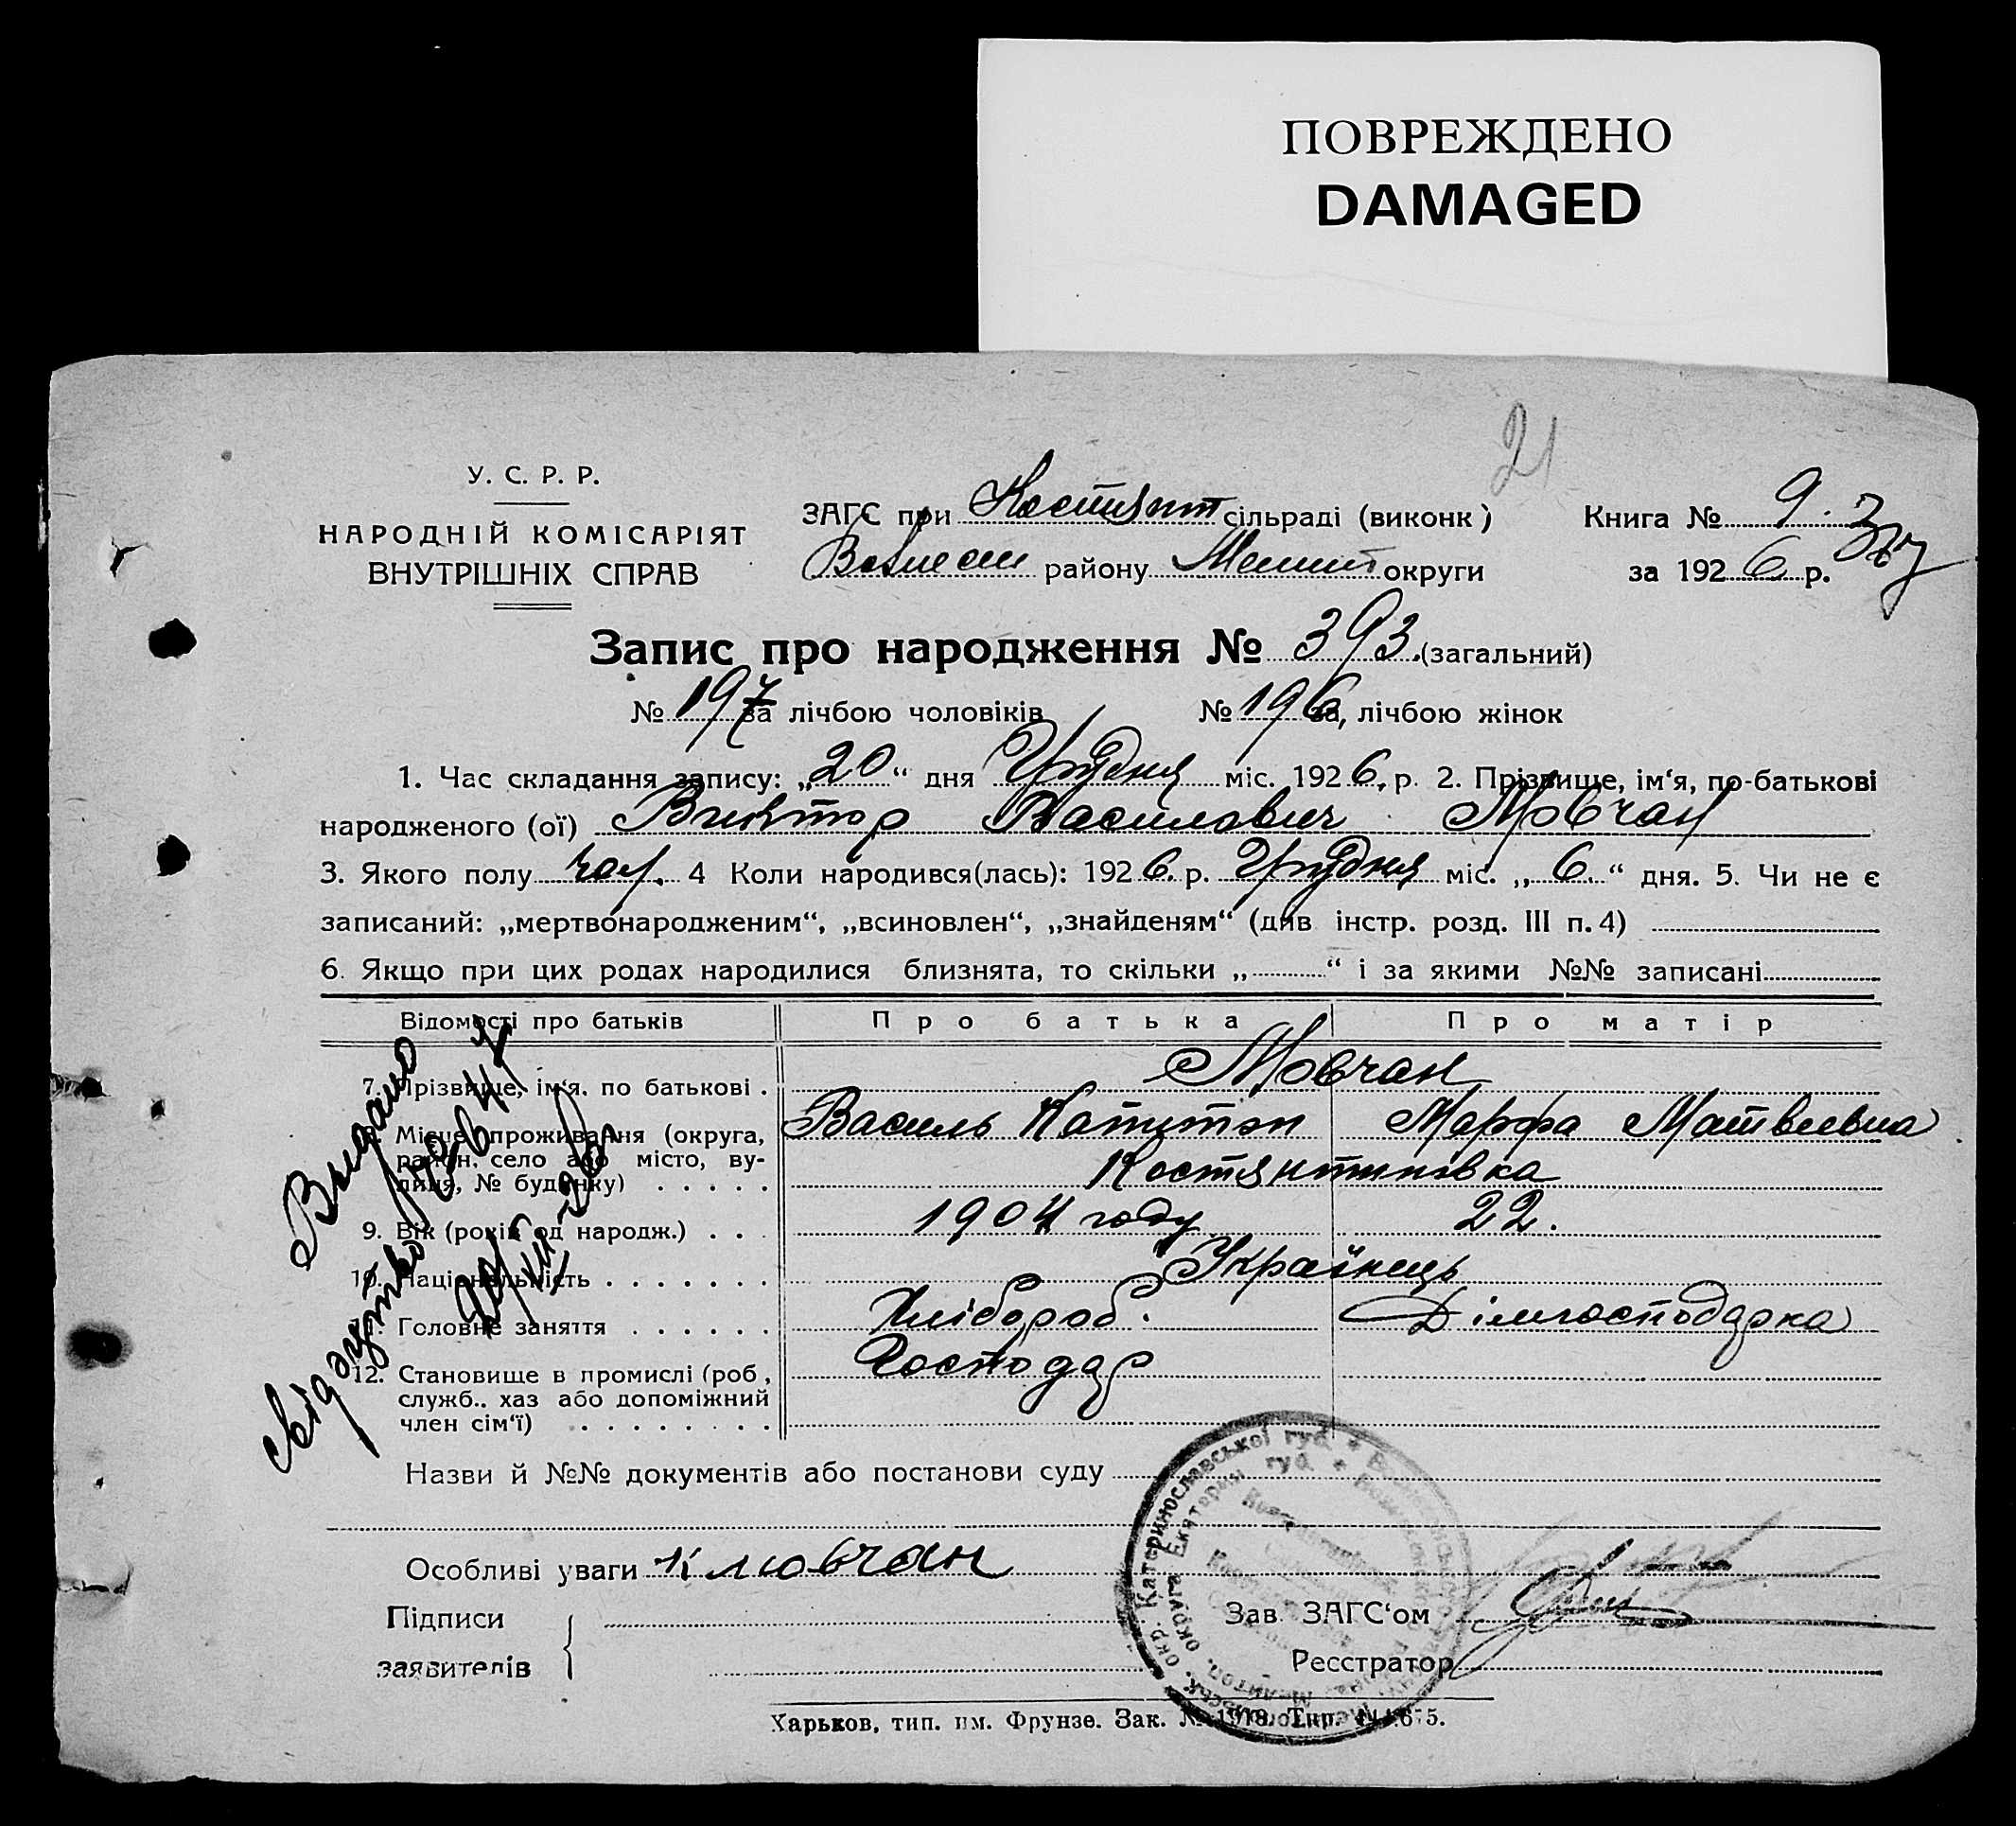 ПОВРЕЖДЕНО
DAMAGED
21
У. С. Р. Р.
НАРОДНІЙ КОМІСАРІЯТ
ВНУТРІШНІХ СПРАВ
ЗАГС при Костянт сільраді (виконк)
Вознесен району Мелит округи
Книга № 9.
за 1926 р.
Запис про народження № 393. (загальний)
№ 197 за лічбою чоловіків № 196 за, лічбою жінок
1. Час складання запису: „20“ дня Грудня міс. 1926, р. 2. Прізвище, ім‘я, по-батькові
народженого (ої) Виктор Василович Мовчан
3. Якого полу чол. 4 Коли народився(лась): 1926. р. Грудня міс. „6.“ дня. 5. Чи не є
записаний: „мертвонародженим“, „всиновлен“, „знайденям“ (див інстр. розд. III п. 4)
6. Якщо при цих родах народилися близнята, то скільки „ “ і за якими №№ записані
Відомості про батьків Про батька Про матір
7. Прізвище, ім‘я. по батькові . Мовчан
Василь Марфа Матвеевна
8. Місце проживання (округа,
район, село або місто, ву-
лиця, № будинку) . . . . . Костянтиновка
9. Вік (років од народж.) . . . 1904 году 22.
10. Національність . . . . . . . Українець
11. Головне заняття . . . . . . Хлібороб. Дімгосподарка
12. Становище в промислі (роб, Господар
служб.. хаз або допоміжний
член сім‘ї) . . . . . . . .
Видано
свідоцтво
Назви й №№ документів або постанови суду
Особливі уваги К мовчан
Підписи
заявителів
Зав. ЗАГС‘ом
Реєстратор
окр. Катеринославської губ. *
округа Екатерин губ. *
Харьков, тип. им. Фрунзе. Зак. № 1918. Тир.